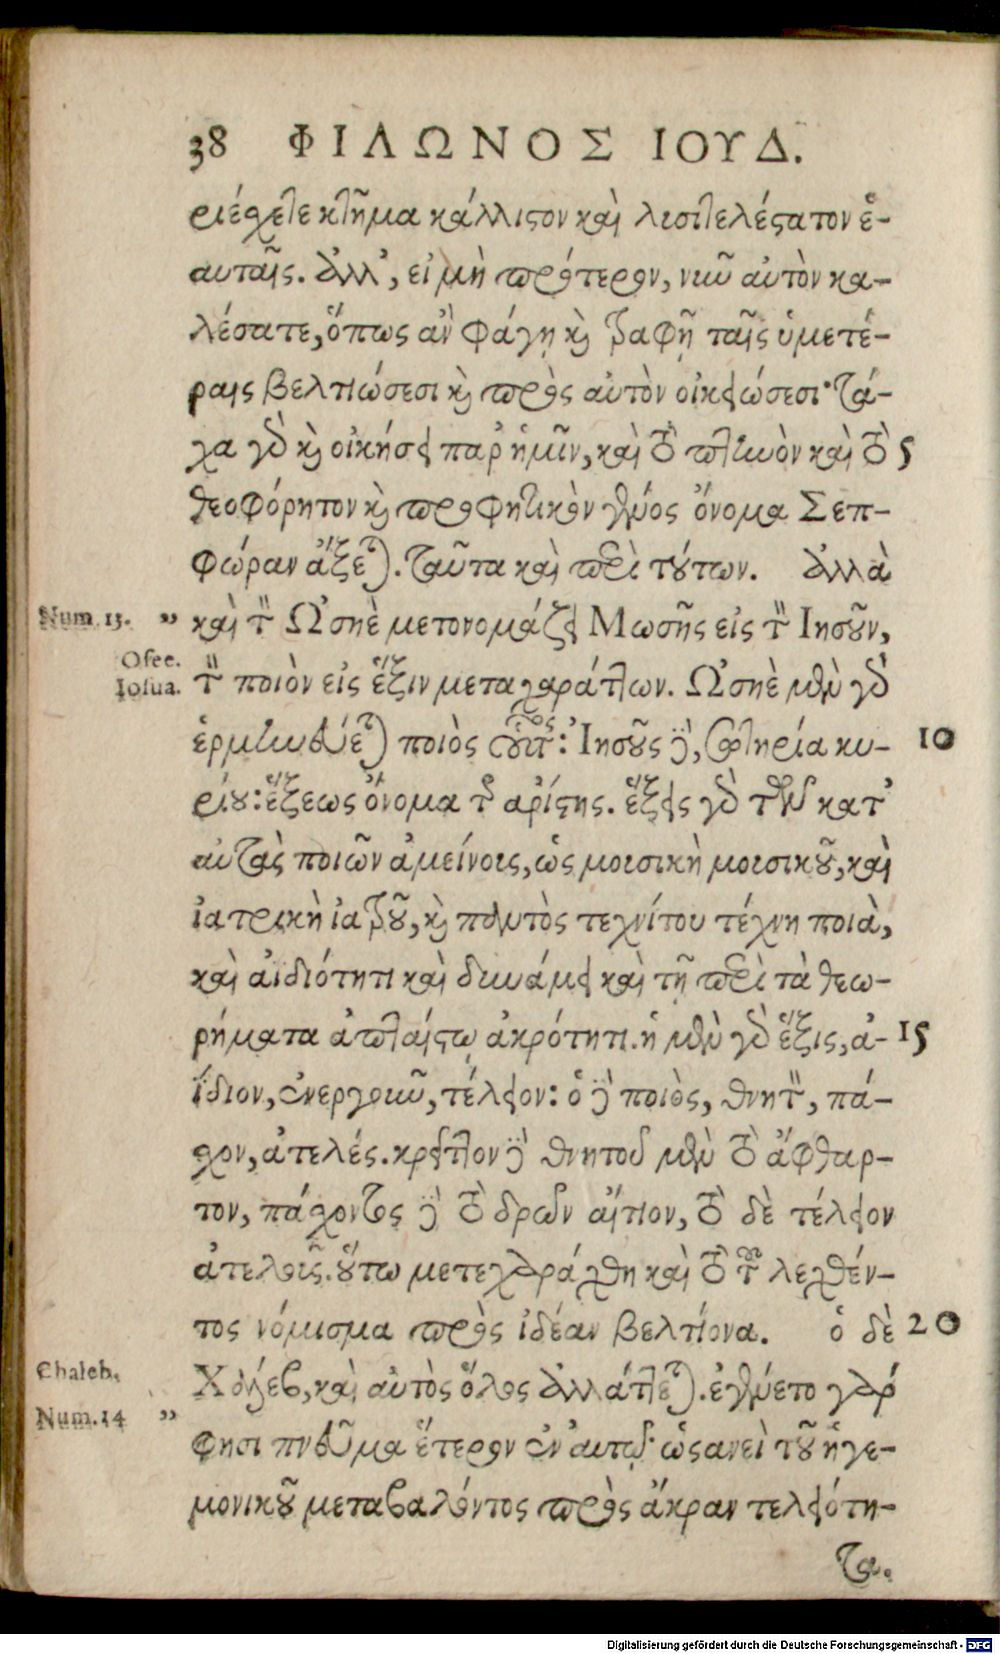 38 ΦΙΛΩΝΟΣ ΙΟΥΔ.
ριέχετε κτῆμα κάλλιστον καὶ λυσιτελέστατον ἑ-
αυταῖς. ἀλλ’, εἰ μὴ πρότερον, νῦν αὐτὸν κα-
λέσατε, ὅπως ἂν φάγῃ καὶ τραφῇ ταῖς ὑμετέ-
ραις βελτιώσεσι καὶ πρὸς αὐτὸν οἰκειώσεσι· τά-
χα γὰρ καὶ οἰκήσει παρ’ ἡμῖν, καὶ τὸ πτηνὸν καὶ τὸ 5
θεοφόρητον καὶ προφητικὸν γένος ὄνομα Σεπ-
φώραν ἄξεται. ταῦτα καὶ περὶ τούτων. ἀλλὰ
Num. 13. „ καὶ τὸν Ὠσηὲ μετονομάζει Μωσῆς εἰς τὸν Ἰησοῦν,
Osee.
Iosua. τὸν ποιὸν εἰς ἕξιν μεταχαράττων. Ὠσηὲ μὲν γὰρ
ἑρμηνεύεται ποιὸς οὗτος: Ἰησοῦς δὲ, σωτηρία κυ- 10
ρίου: ἕξεως ὄνομα τῆς ἀρίστης. ἕξεις γὰρ τῶν κατ’
αὐτὰς ποιῶν ἀμείνους, ὡς μουσικὴ μουσικοῦ, καὶ
ἰατρικὴ ἰατροῦ, καὶ παντὸς τεχνίτου τέχνη ποιὰ,
καὶ ἀϊδιότητι καὶ δυνάμει καὶ τῇ περὶ τὰ θεω-
ρήματα ἀπταίστῳ ἀκρότητι. ἡ μὲν γὰρ ἕξις, ἀ- 15
ΐδιον, ἐνεργοῦν, τέλειον: ὁ δὲ ποιὸς, θνητὸν, πά-
σχον, ἀτελές. κρεῖττον δὲ θνητοῦ μὲν τὸ ἄφθαρ-
τον, πάσχοντος δὲ τὸ δρῶν αἴτιον, τὸ δὲ τέλειον
ἀτελοῦς. οὕτω μετεχαράχθη καὶ τὸ τοῦ λεχθέν-
τος νόμισμα πρὸς ἰδέαν βελτίονα. ὁ δὲ 20
Chaleb. Χάλεβ, καὶ αὐτὸς ὅλος ἀλλάττεται. ἐγένετο γάρ
Num. 14 „ φησι πνεῦμα ἕτερον ἐν αὐτῷ· ὡσανεὶ τοῦ ἡγε-
μονικοῦ μεταβαλόντος πρὸς ἄκραν τελειότη-
τα.
Digitalisierung gefördert durch die Deutsche Forschungsgemeinschaft - DFG